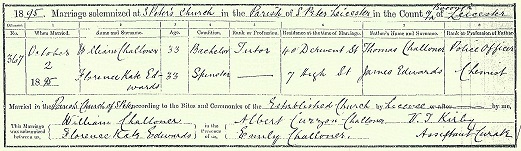 1895. Marriage solemnized at S. Peter's Church in the Parish of S. Peter Leicester in the County of Leicester
No. When Married. Name and Surname. Age. Condition. Rank or Profession. Residence at the time of Marriage. Father's Name and Surname. Rank or Profession of Father.
367 October 2 1895 William Challoner 33 Bachelor Tutor 40 Derwent St Thomas Challoner Police Officer
Florence Kate Edwards 33 Spinster — 7 High St James Edwards Chemist
Married in the Parish Church of S. Peter according to the Rites and Ceremonies of the Established Church by Licence or after by me,
This Marriage was solemnized between us, William Challoner Florence Kate Edwards in the Presence of us, Albert Curzon Challoner Emily Challoner V. T. Kirby Assistant Curate